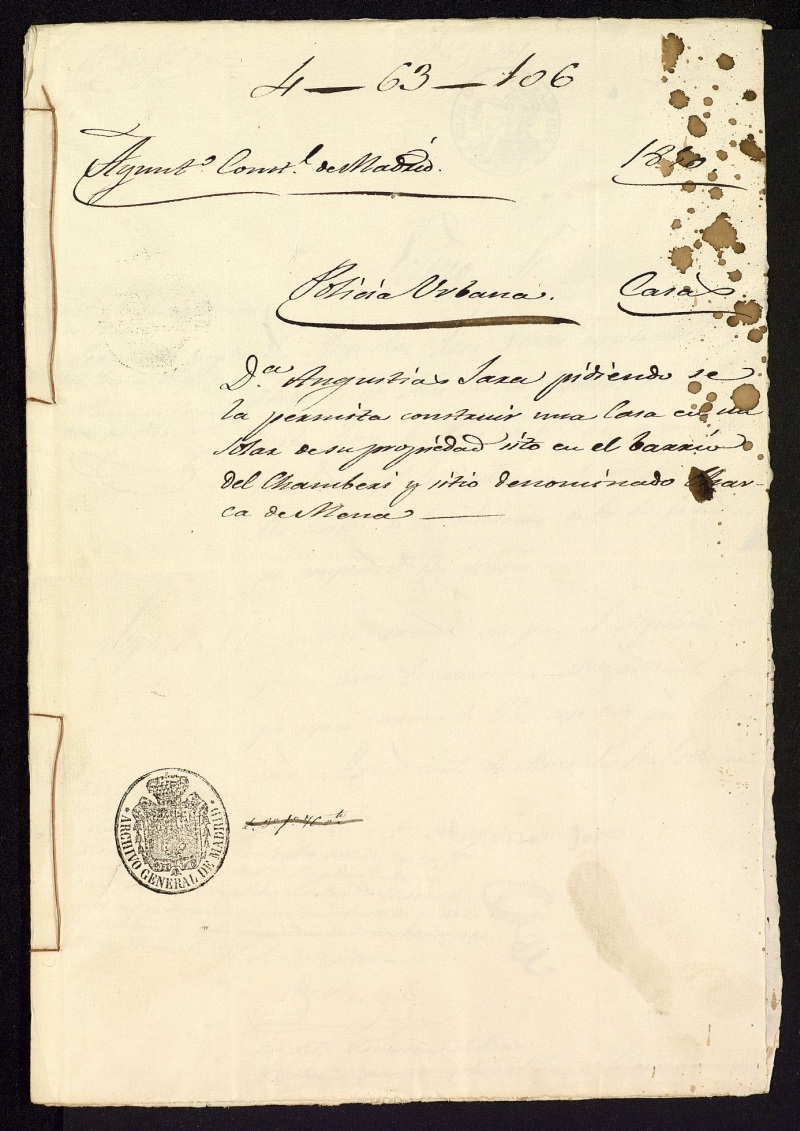 4 — 63 — 106
Ayunt.º Const.l de Madrid.
Policia Urbana. Casas
D.ª Angustias Jara pidiendo se
la permita construir una Casa en un
solar de su propiedad sito en el barrio
del Chamberi y sitio denominado Char-
ca de Mena —
ARCHIVO GENERAL DE MADRID